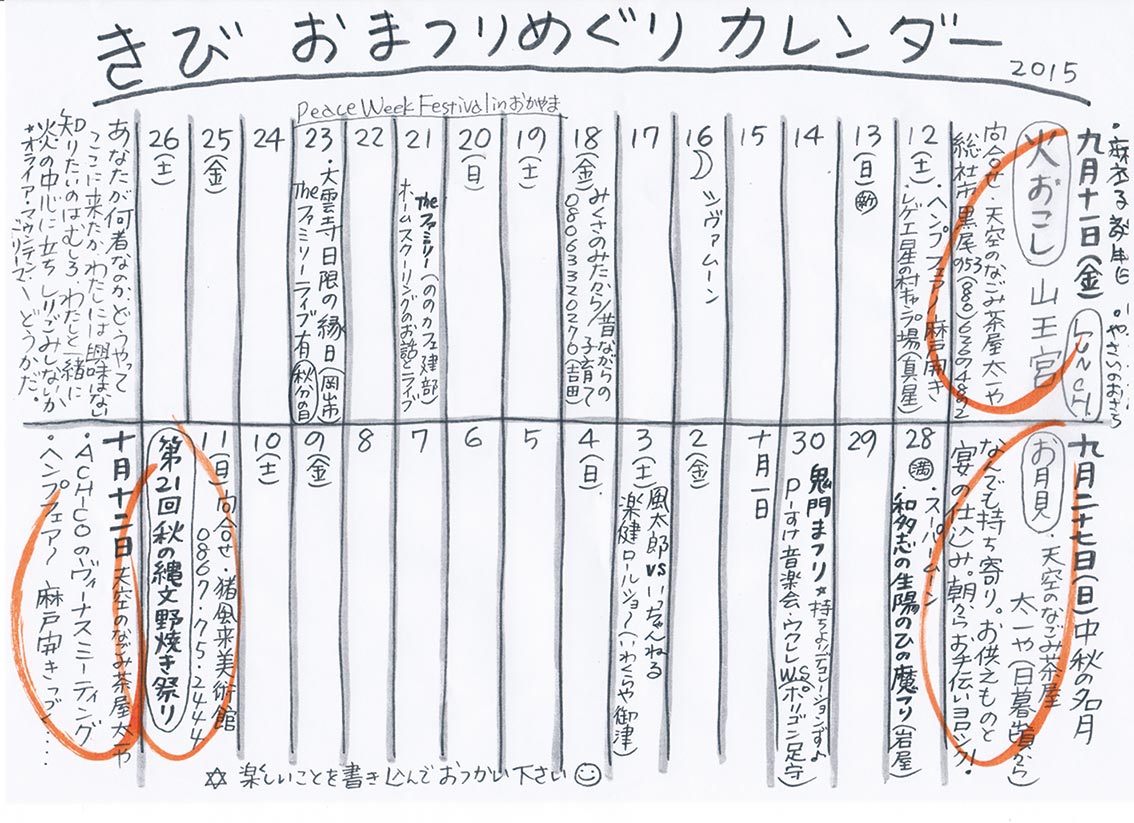 きび おまつりめぐり カレンダー
2015
Peace Week Festival in おかやま
九月十一日(金) LUNCH
火おこし 山王宮
問合せ・天空のなごみ茶屋太一や
総社市黒尾953(080)63064892
12(土)・ヘンプフェアー麻戸開き
・レゲエ星の村キャンプ場(真星)
13(日)新
14
15
16 シヴァムーン
17
18(金)みくさのみたから/昔ながらの子育て
08063320276(吉田)
19(土)
20(日)
21 Theファミリー(ののカフェ建部)
ホームスクーリングのお話とライブ
22
23・大雲寺日限の縁日(岡山市)
Theファミリーライブ有 秋分の日
24
25(金)
26(土)
あなたが何者なのか、どうやって
ここに来たか わたしには興味はない
知りたいのはむしろ、わたしと一緒に
炎の中心に立ち しりごみしないか
どうかだ。
オライア・マウンテン
九月二十七日(日)中秋の名月
お月見・天空のなごみ茶屋
太一や(日暮頃から)
なんでも持ち寄り。お供えものと
宴の仕込み。朝からお手伝いヨロシク!
28 満・スーパームーン
・和多志の生陽のひの魔つり(岩屋)
29
30 鬼門まつり☆持ちよりデコレーションずし
Pーすけ音楽会・ウクレレW.S。ポリゴン足守
十月一日
2(金)
3(土)風太郎VSいっちゃんねる
楽健ロールショー(いわくらや御津)
4(日)
5
6
7
8
9(金)
10(土)
11(日)問合せ・猪風来美術館
0867・75・2444
第21回 秋の縄文野焼き祭り
十月十二日 天空のなごみ茶屋太一や
・ACHICOのヴィーナスミーティング
・ヘンプフェアー 麻戸開きっゴン....
✡ 楽しいことを書き込んでおつかい下さい☺